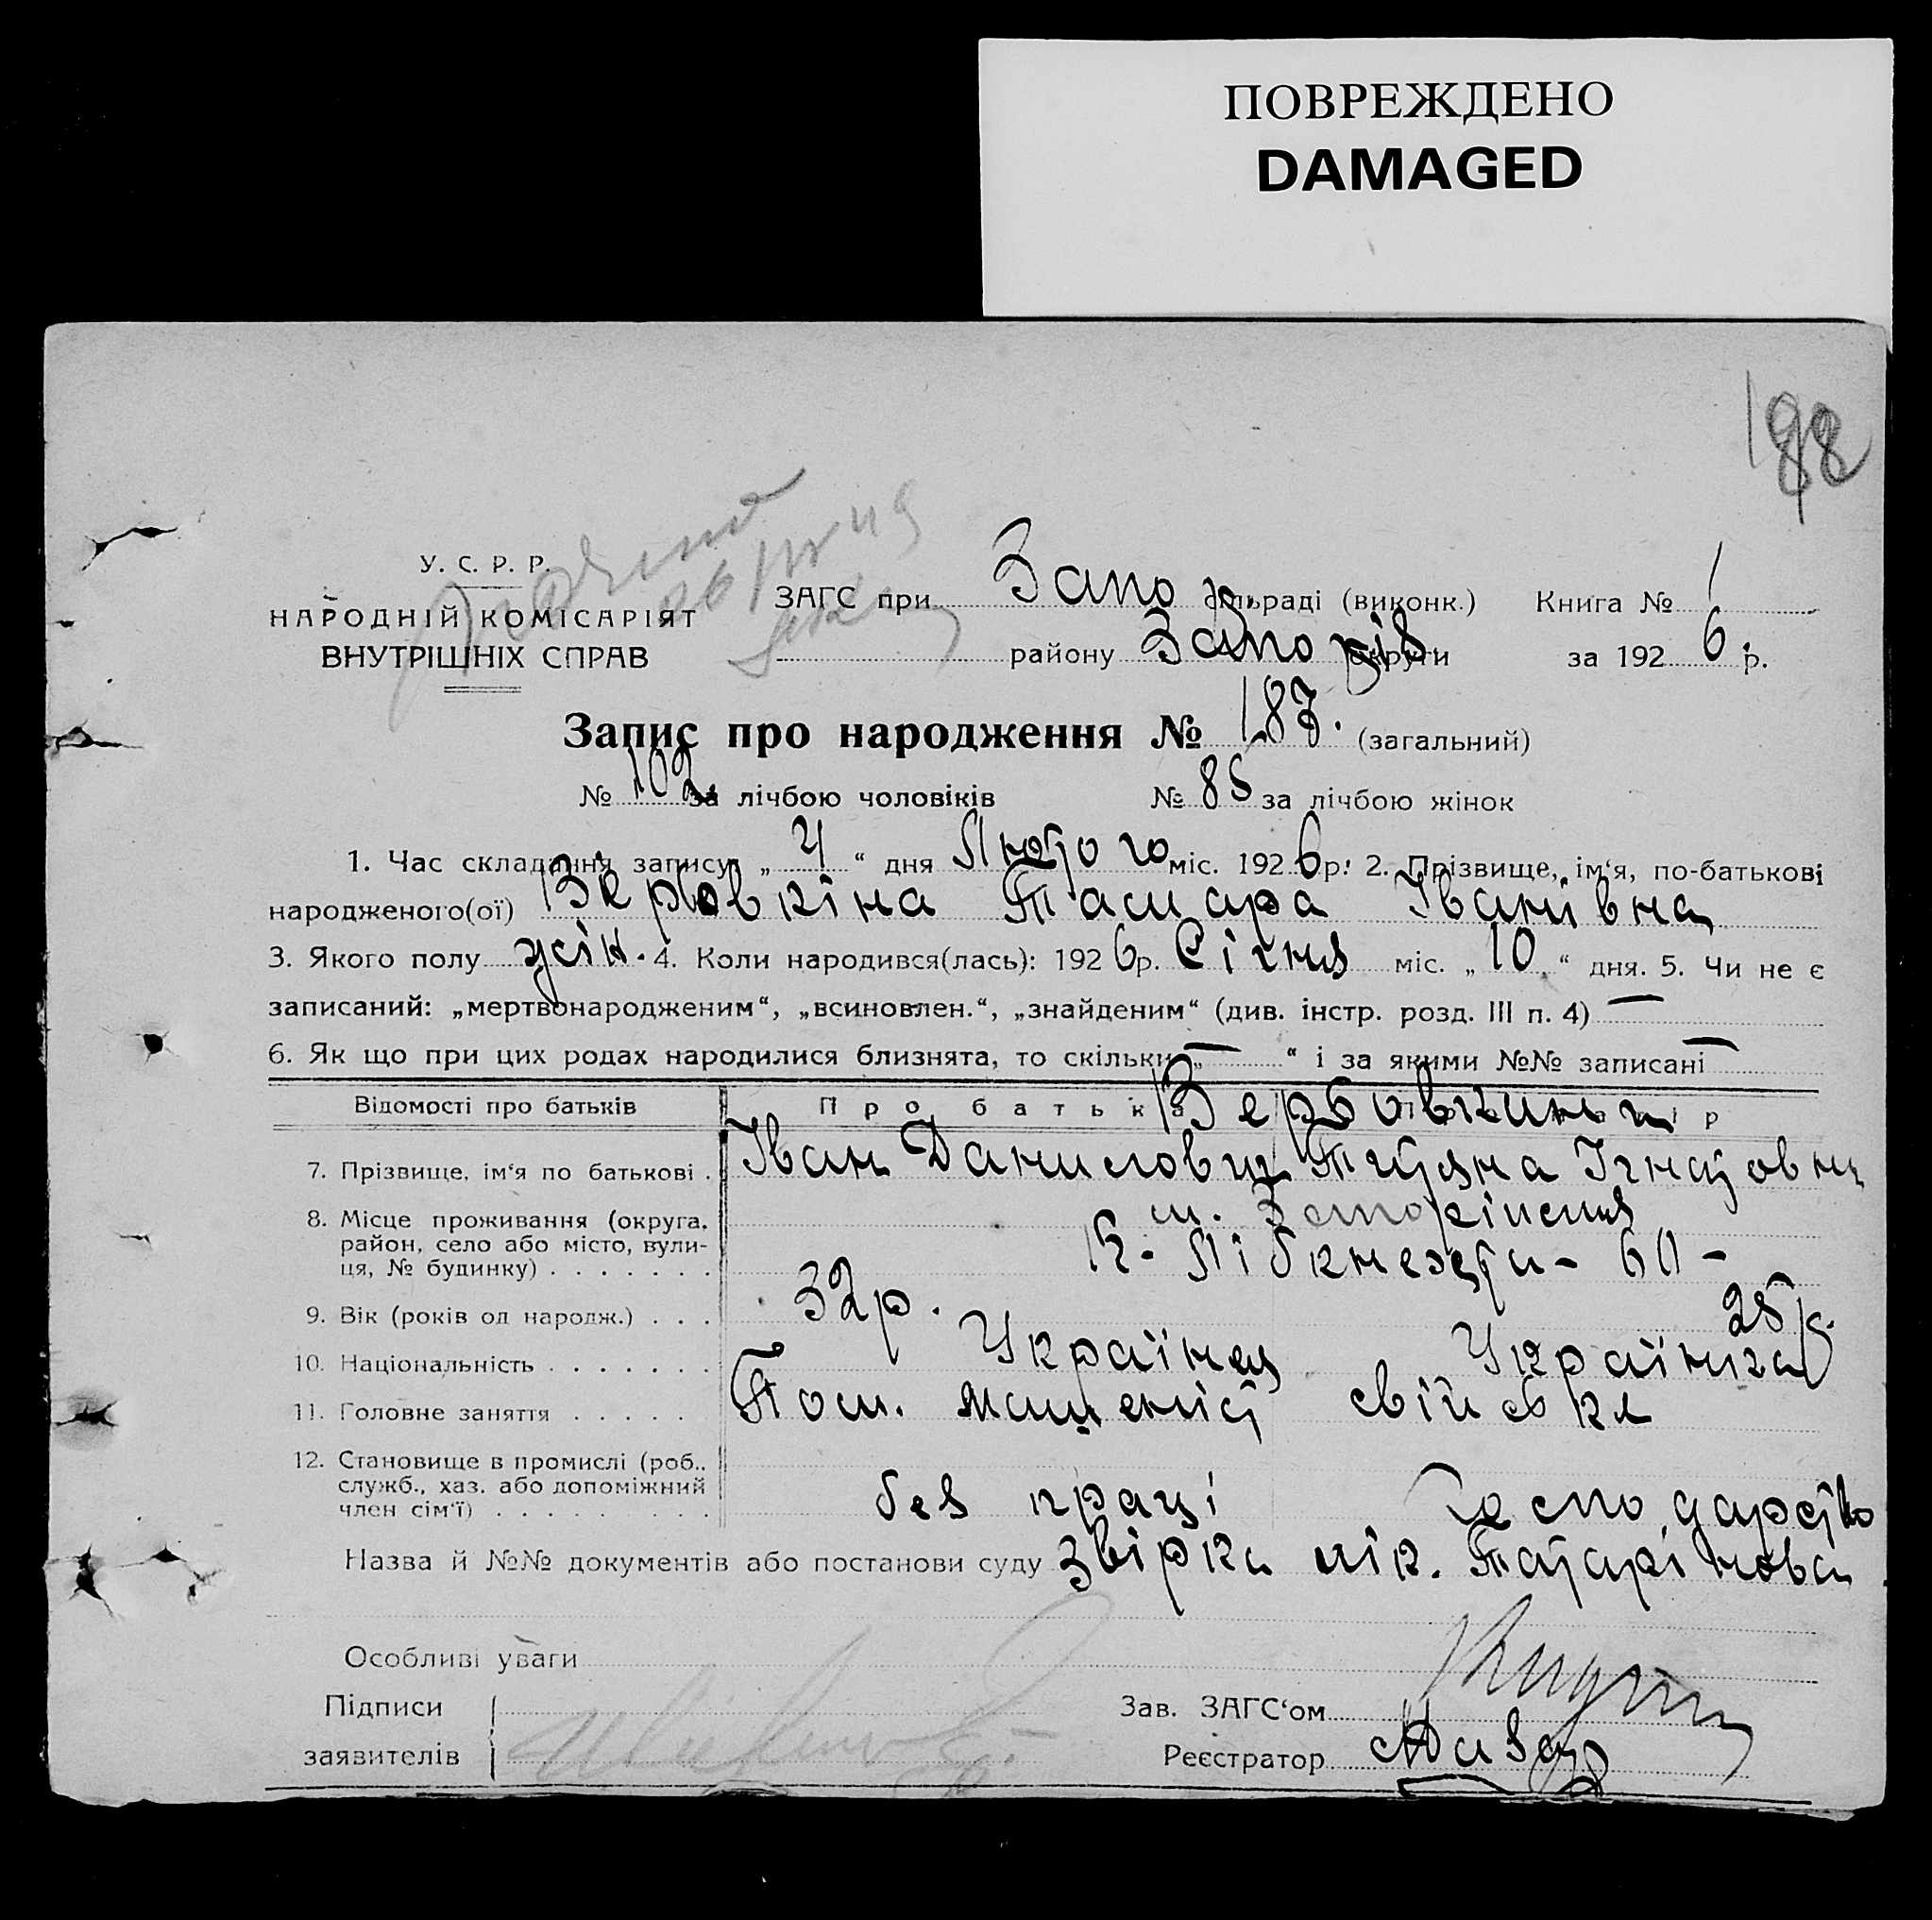 ПОВРЕЖДЕНО
DAMAGED
198
У. С. Р. Р.
НАРОДНІЙ КОМІСАРІЯТ
ВНУТРІШНІХ СПРАВ
ЗАГС при Запор. сільраді (виконк.) Книга № 1
району Запоріз. округи за 192 6 р.
Запис про народження № 187. (загальний)
№ 102 за лічбою чоловіків № 85 за лічбою жінок
1. Час складання запису: „ 4 “ дня Лютого міс. 192 6 р. 2. Прізвище, ім‘я, по-батькові
народженого(ої) Вербовкіна Тамара Іванівна
3. Якого полу жін. 4. Коли народився(лась): 192 6 р. Січня міс. „ 10 “ дня. 5. Чи не є
записаний: „мертвонародженим“, „всиновлен.“, „знайденим“ (див. інстр. розд. III п. 4) —
6. Як що при цих родах народилися близнята, то скільки „ — “ і за якими №№ записані —
Відомості про батьків Про батька Вербовкини
7. Прізвище, ім‘я по батькові . Іван Данилович Тетяна Ігнатовна
8. Місце проживання (округа, район, село або місто, вулиця, № будинку) . . . . . . . м. Запоріжжя
К. Лібкнехта - 60 -
9. Вік (років од народж.) . . . 32 р. 25 р.
10. Національність . . . . . . . Українец Українка
11. Головне заняття . . . . . Пом. машиніст свійська
12. Становище в промислі (роб.,
служб., хаз. або допоміжний
член сім‘ї) . . . . . . . . . без праці Господарство
Назва й №№ документів або постанови суду Звірка лік. Татарінова
Особливі уваги
Підписи
заявителів
Зав. ЗАГС‘ом
Реєстратор